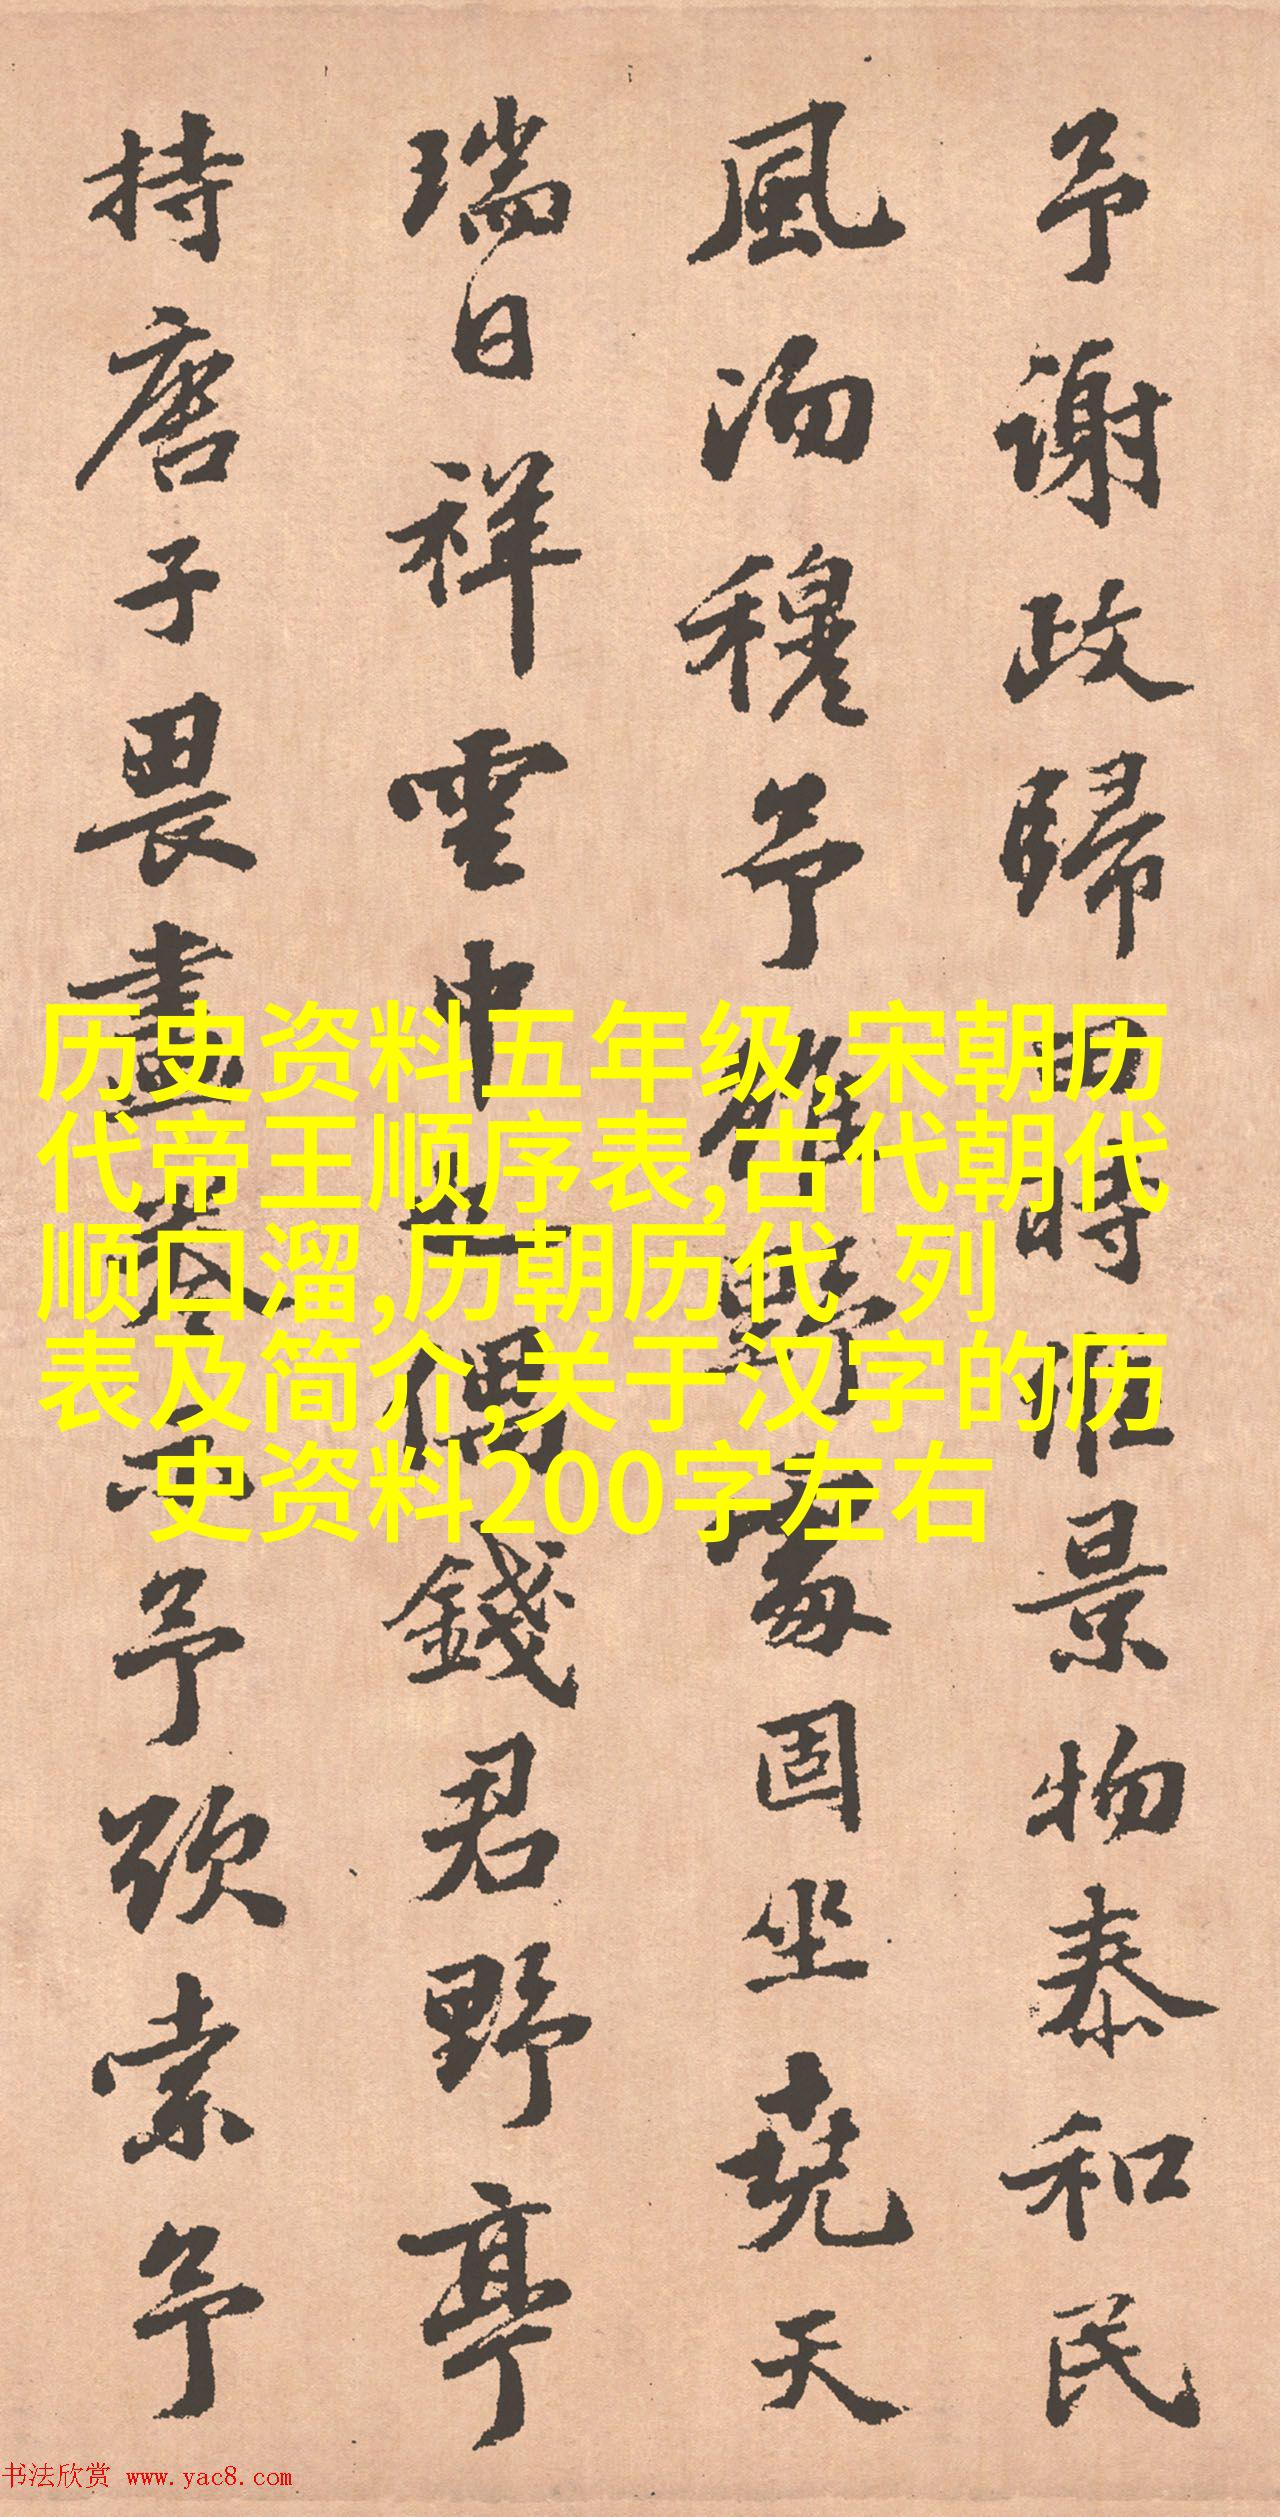 予谢政歸田時惟景物泰和民
風沕穆予雖野處固坐堯天
瑞日祥雲中也偶錢君野亭
持唐子畏畫卷示予欣索予
历史资料五年级,宋朝历
代帝王顺序表,古代朝代
顺口溜,历朝历代 列
表及简介,关于汉字的历
史资料200字左右
书法欣赏 www.yac8.com